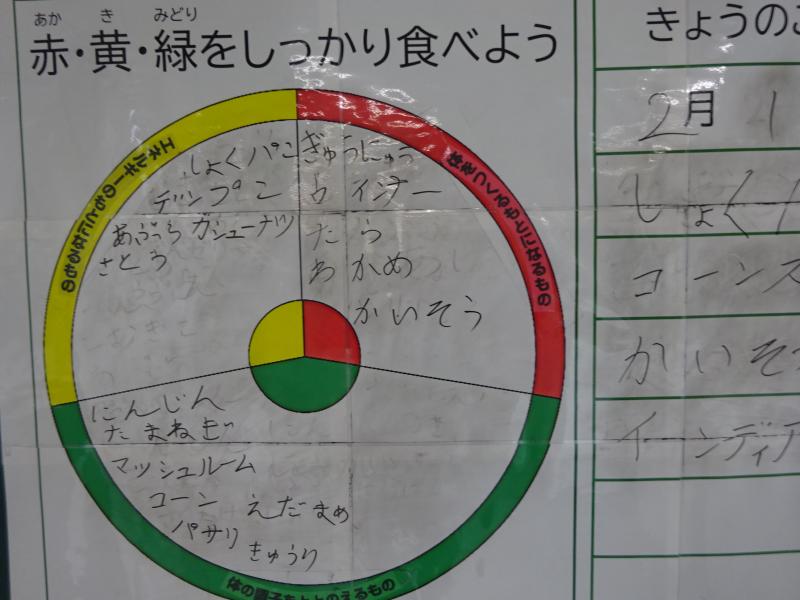 あか き みどり
赤・黄・緑をしっかり食べよう
きょうのこ
2月 1
エネルギーのもとになるもの
体をつくるもとになるもの
体の調子をととのえるもの
しょくパン
デンプン
あぶら カシューナッツ
さとう
ぎゅうにゅう
たら
わかめ
かいそう
にんじん
たまねぎ
マッシュルーム
コーン えだまめ
パセリ
きゅうり
しょくパ
コーンス
かいそう
インディア